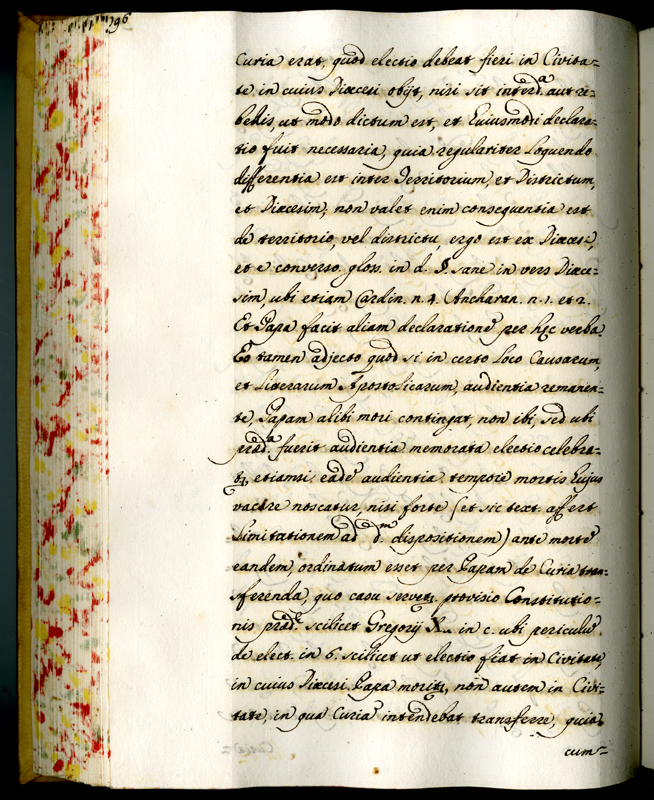 196
Curia erat, quod electio debeat fieri in Civita=
te in cuius Diœcesi obijt, nisi sit interd.a aut re=
bellis, ut modo dictum est, et Euiusmodi declara=
tio fuit necessaria, quia regulariter Loquendo
differentia est inter Territorium, et Districtum,
et Diœcesim, non valet enim consequentia est
de territorio, vel districtu, ergo est ex Diœcesi,
et e converso. gloss. in d. §. sane in vers Diœce=
sim, ubi etiam Cardin. n. 4. Ancharan. n. 1. et 2.
Et Papa facit aliam declarationē per hęc verba.
Eo tamen adjecto, quod si in certo Loco Causarum,
et Literarum Apostolicarum, audientia remanen=
te, Papam alibi mori contingat, non ibi, sed ubi
præd.a fuerit audientia memorata electio celebra=
etiamsi eadē audientia tempore mortis Eujus
vacare noscatur, nisi forte (et sic text. affert
Limitationem ad d.m dispositionem) ante mortē
eandem, ordinatum esset per Papam de Curia tran=
sferenda, quo casu servetr. provisio Constitutio=
nis præd.æ scilicet Gregorij X. in c. ubi periculū
de elect. in 6. scilicet ut electio fiat in Civitate,
in cuius Diœcesi Papa moritr, non autem in Civi=
tate, in qua Curia intendebat transferre, quia
cum=